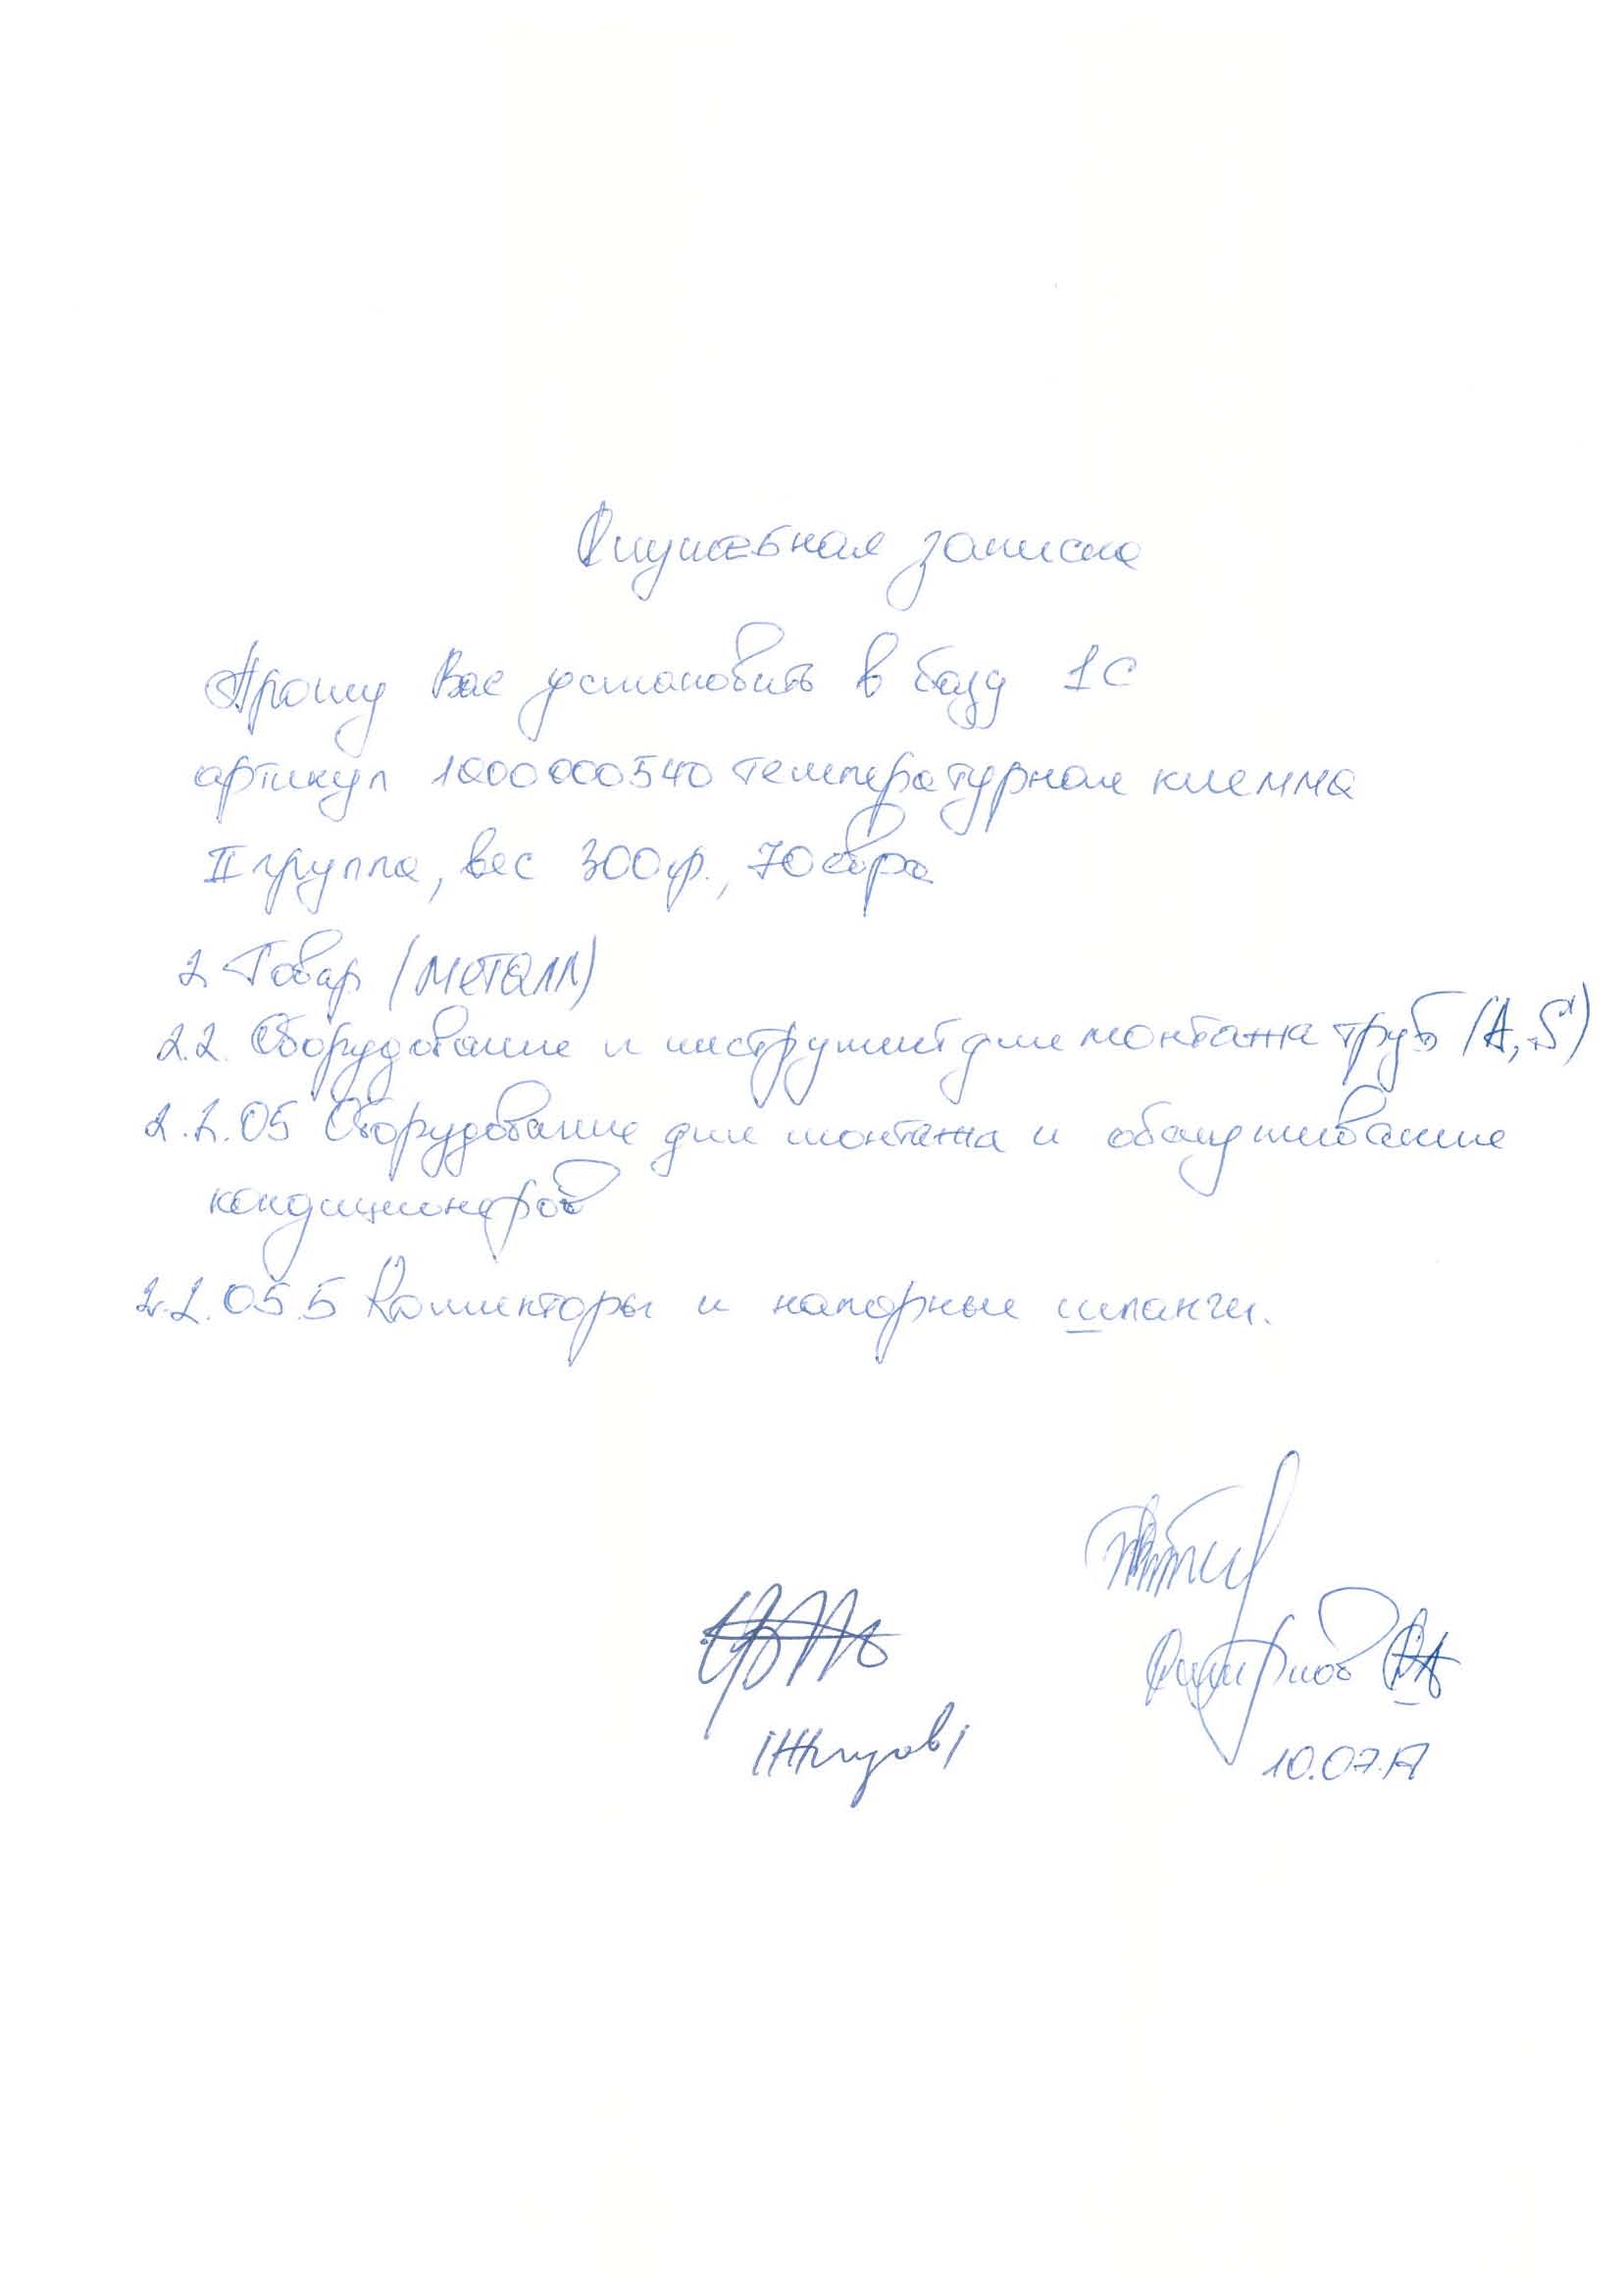 Служебная записка
Прошу Вас установить в базу 1С
артикул 1000000540 температурная клемма
II группа, вес 300гр., 70евро
2 Товар (металл)
2.2. Оборудование и инструмент для монтажа труб (А, S)
2.2.05 Оборудование для монтажа и обслуживание
кондиционеров
2.2.05.5 Коллекторы и напорные шланги.
10.07.17